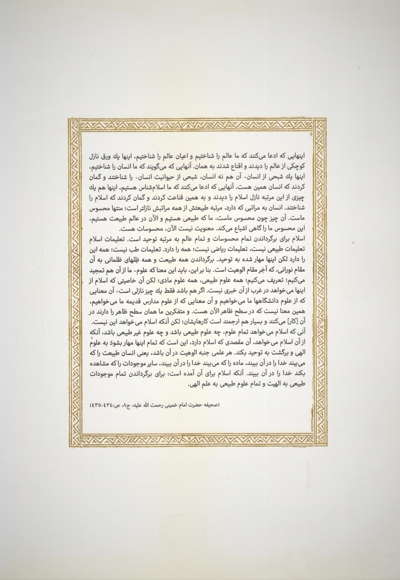 اینهایی که ادعا می‌کنند که ما عالم را شناختیم و اعیان عالم را شناختیم، اینها یك ورق نازل
کوچکی از عالم را دیدند و اقناع شدند به همان. آنهایی که می‌گویند که ما انسان را شناختیم،
اینها یك شبحی از انسان- آن هم نه انسان، شبحی از حیوانیت انسان- را شناختند و گمان
کردند که انسان همین هست. آنهایی که ادعا می‌کنند که ما اسلام‌شناس هستیم، اینها هم یك
چیزی از این مرتبه نازل اسلام را دیدند و به همین قناعت کردند و گمان کردند که اسلام را
شناختند. انسان به مراتبی که دارد، مرتبه طبیعتش از همه مراتبش نازلتر است؛ منتها محسوس
ماست. آن چیز چون محسوس ماست، ما که طبیعی هستیم و الآن در عالم طبیعت هستیم،
این محسوس ما را گاهی اشباع می‌کند. معنویت نیست الآن، محسوسات هست.
اسلام برای برگرداندن تمام محسوسات و تمام عالم به مرتبه توحید است. تعلیمات اسلام
تعلیمات طبیعی نیست، تعلیمات ریاضی نیست؛ همه را دارد. تعلیمات طب نیست؛ همه این
را دارد لکن اینها مهار شده به توحید. برگرداندن همه طبیعت و همه ظلهای ظلمانی به آن
مقام نورانی، که آخر مقام الوهیت است. بنا بر این، باید این معنا که علوم- ما از آن هم تمجید
می‌کنیم؛ تعریف می‌کنیم؛ همه علوم طبیعی، همه علوم مادی؛ لکن آن خاصیتی که اسلام از
اینها می‌خواهد در غرب از آن خبری نیست. اگر هم باشد فقط یك چیز نازلی است- آن معنایی
که از علوم دانشگاهها ما می‌خواهیم و آن معنایی که از علوم مدارس قدیمه ما می‌خواهیم،
همین معنا نیست که در سطح ظاهر الآن هست. و متفکرین ما همان سطح ظاهر را دارند در
آن [کار] می‌کنند و بسیار هم ارجمند است کارهایشان؛ لکن آنکه اسلام می‌خواهد این نیست.
آنی که اسلام می‌خواهد تمام علوم، چه علوم طبیعی باشد و چه علوم غیر طبیعی باشد، آنکه
از آن اسلام می‌خواهد، آن مقصدی که اسلام دارد، این است که تمام اینها مهار بشود به علوم
الهی و برگشت به توحید بکند. هر علمی جنبه الوهیت در آن باشد، یعنی انسان طبیعت را که
می‌بیند خدا را در آن ببیند، ماده را که می‌بیند خدا را در آن ببیند، سایر موجودات را که مشاهده
بکند خدا را در آن ببیند. آنکه اسلام برای آن آمده است؛ برای برگرداندن تمام موجودات
طبیعی به الهیت و تمام علوم طبیعی به علم الهی.
(صحیفه حضرت امام خمینی رحمت الله علیه، ج۸، ص:۴۳۴-۴۳۵)